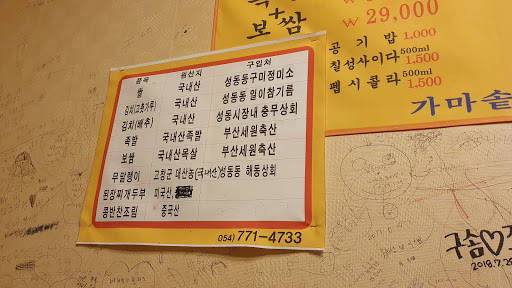 보쌈
₩ 29,000
공기밥 1,000
칠성사이다 500ml 1,500
펩시콜라 500ml 1,500
가마솥
품목 원산지 구입처
쌀 국내산 성동동구미정미소
김치(고춧가루) 국내산 성동동 일이참기름
김치(배추) 국내산 성동시장내 충무상회
족발 국내산족발 부산세원축산
보쌈 국내산목살 부산세원축산
무말랭이 고창군 대산농(국내산) 성동동 해동상회
된장찌개두부 미국산,
콩반찬조림 중국산
054) 771-4733
구솜♡
2018.7.2